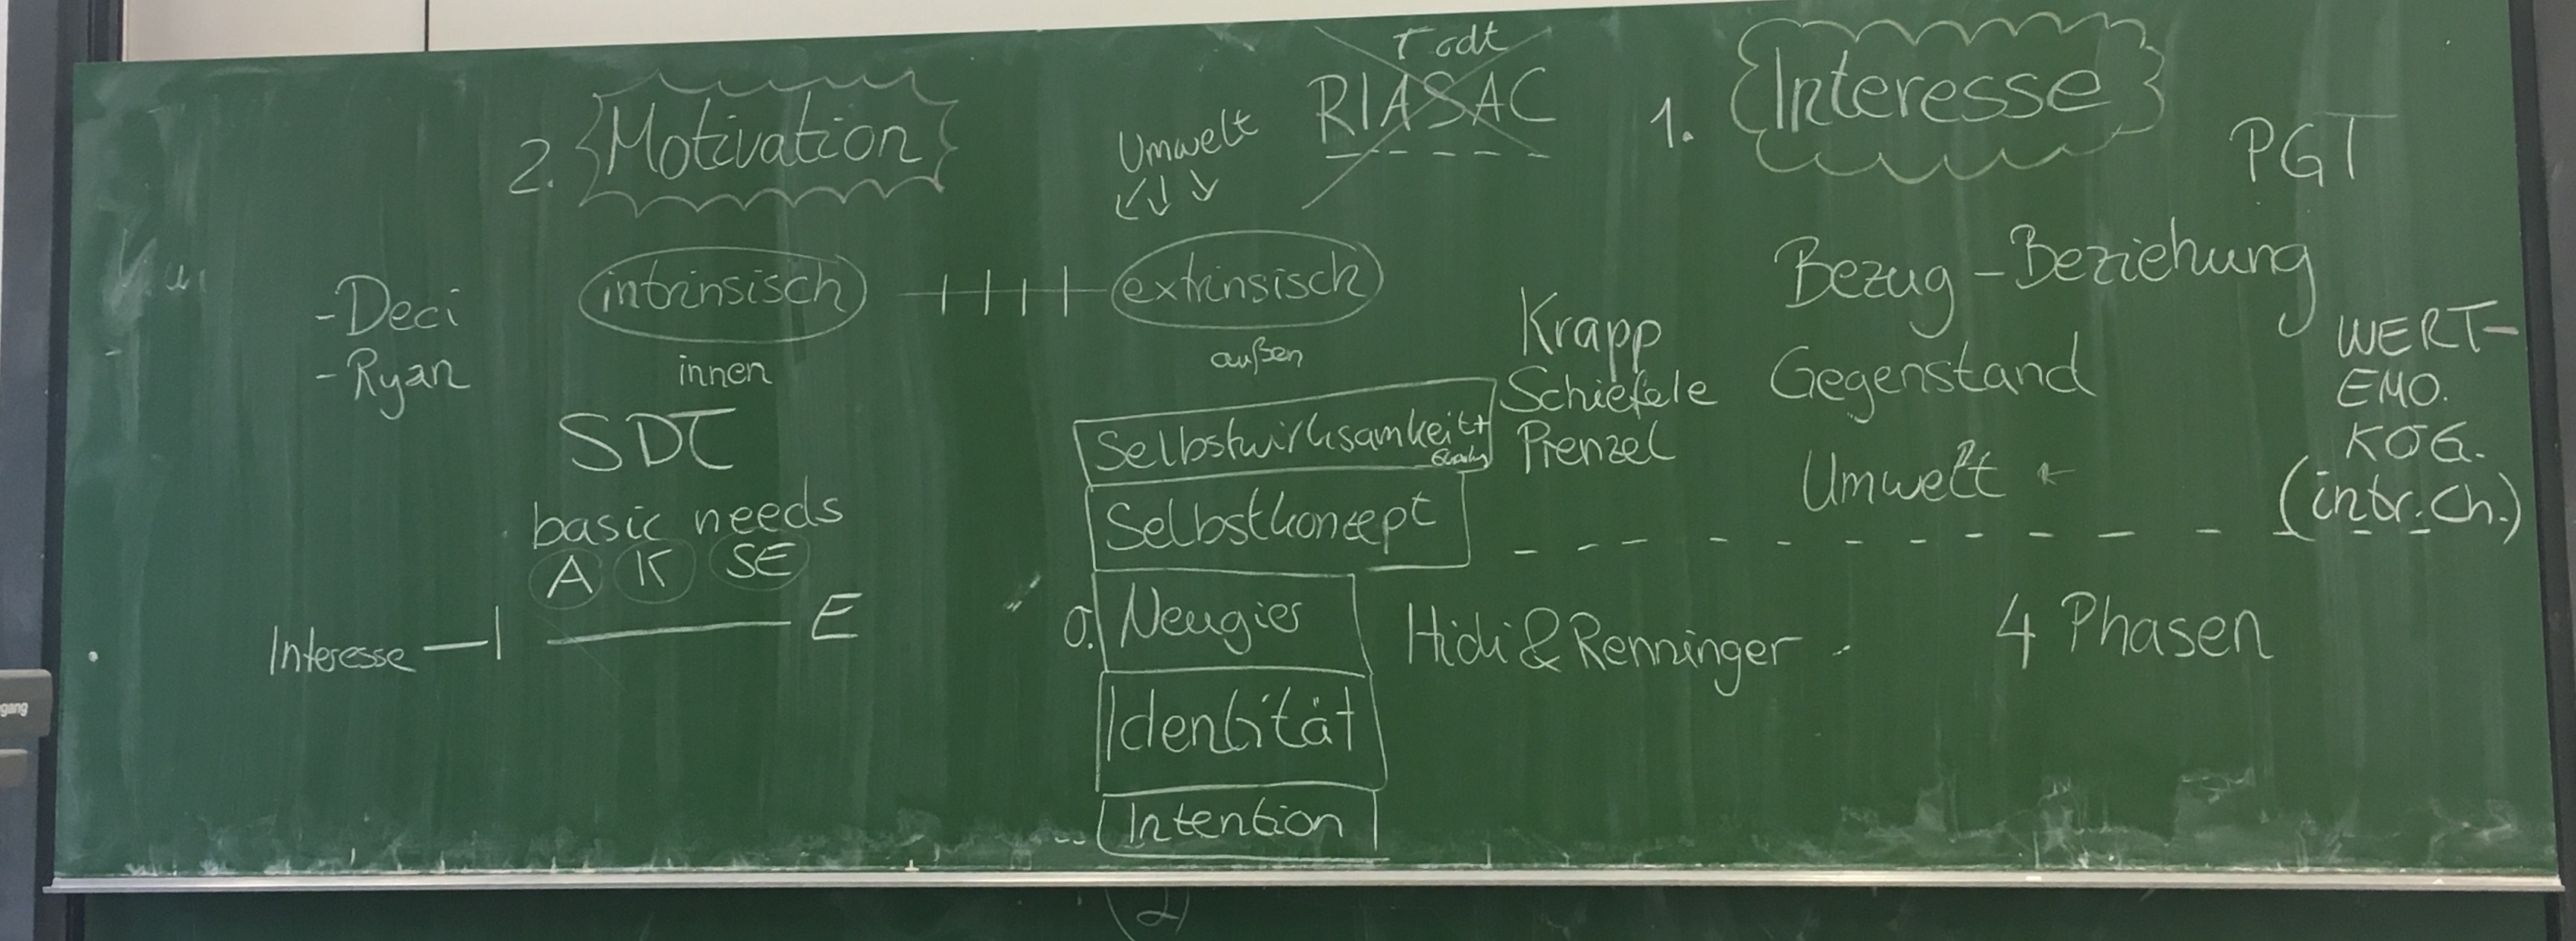 2. Motivation
- Deci
- Ryan
intrinsisch
innen
Umwelt
extrinsisch
außen
SDT
basic needs
A K SE
Interesse
E
Todt
RIASAC
Selbstwirksamkeit +
Selbstkonzept
0. Neugier
Identität
Intention
1. Interesse
PGT
Krapp
Schiefele
Prenzel
Bezug - Beziehung
Gegenstand
Umwelt
WERT-
EMO.
KOG.
(intr. Ch.)
Hidi & Renninger
4 Phasen
gang
2